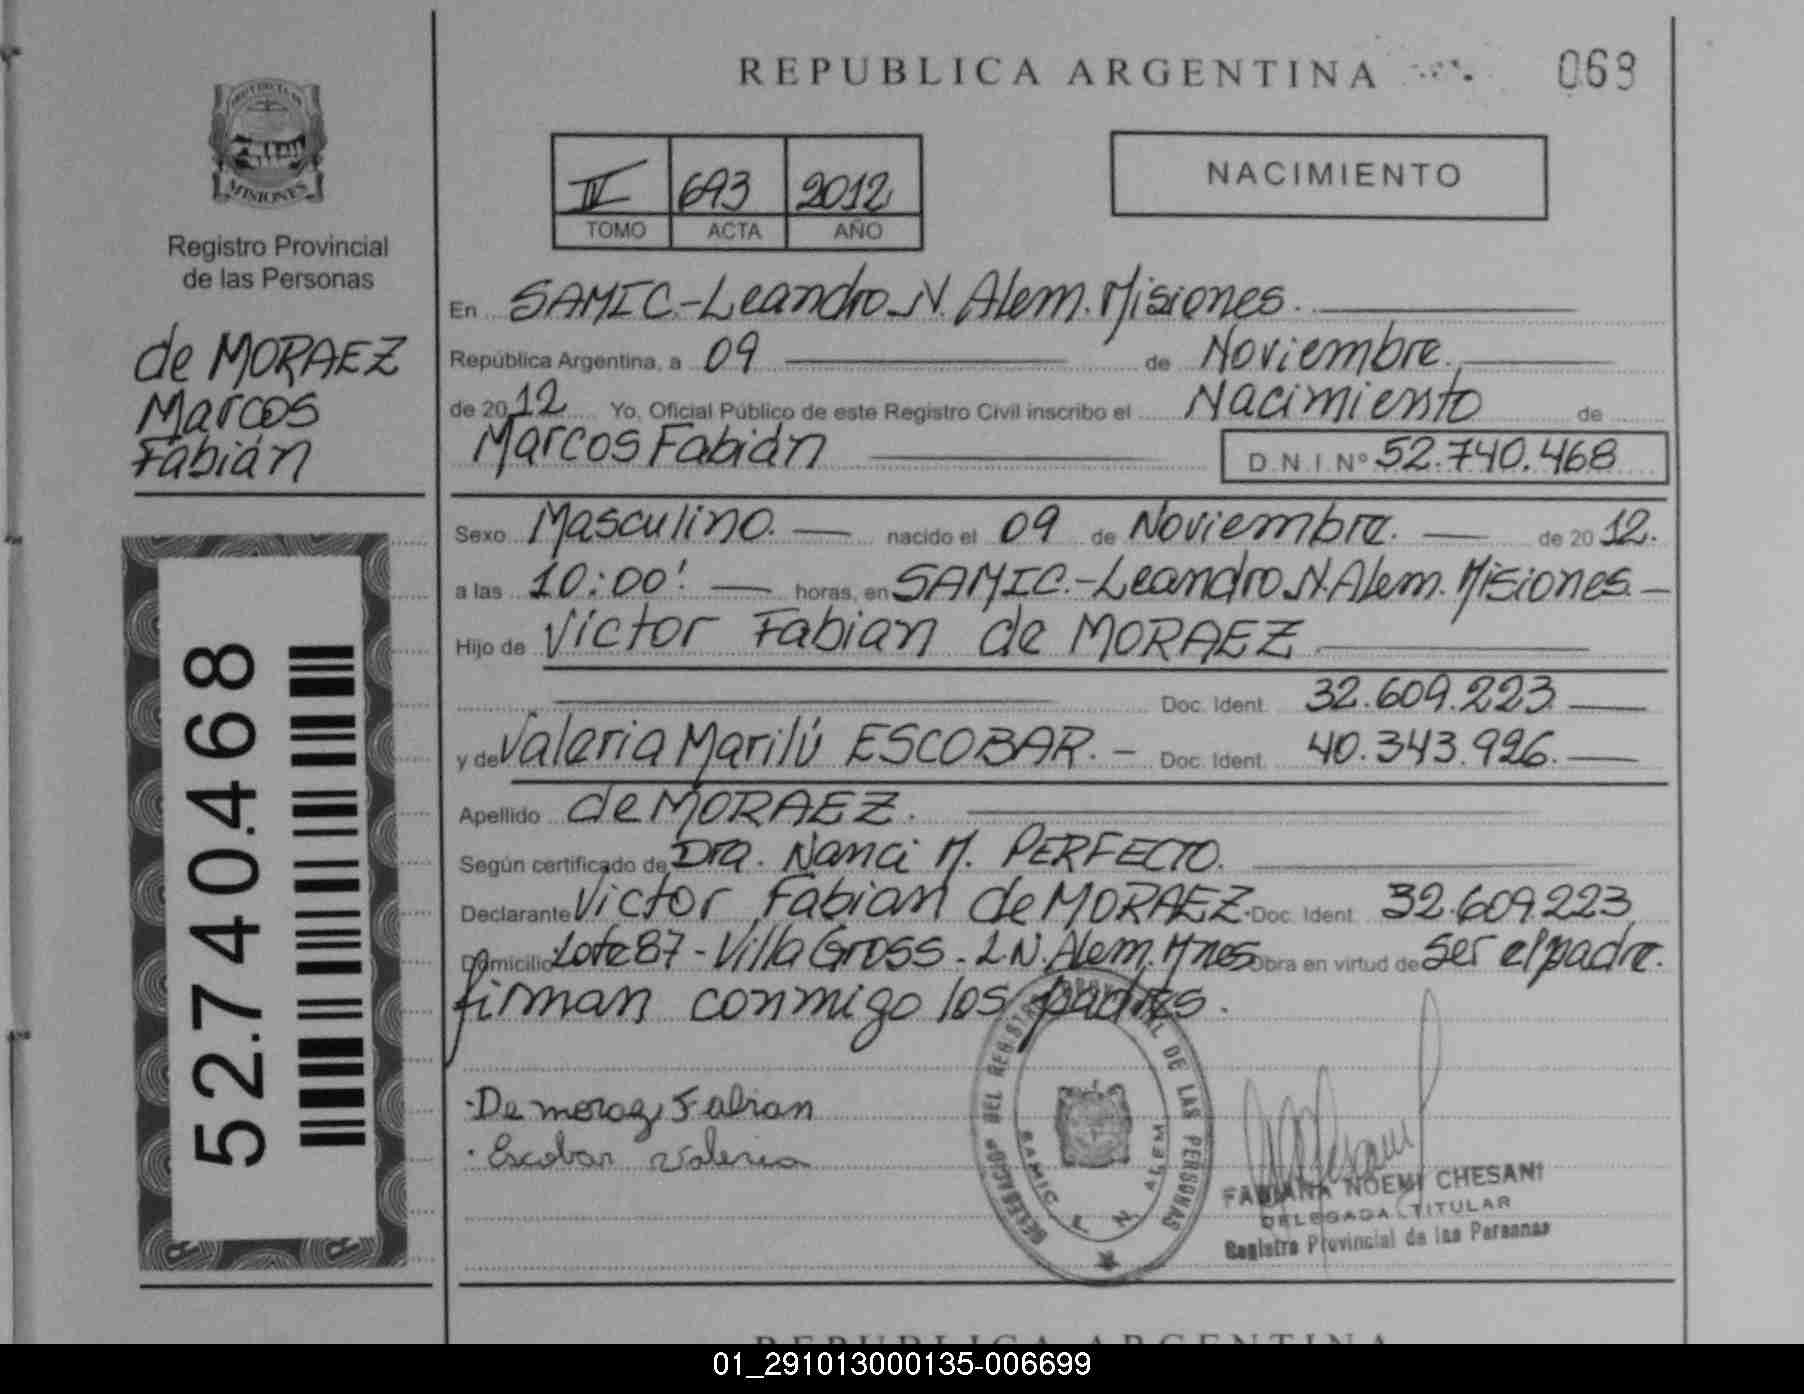 REPUBLICA ARGENTINA
069
MISIONES
Registro Provincial
de las Personas
de MORAEZ
Marcos
Fabián
52.740.468
IV 693 2012
TOMO ACTA AÑO
NACIMIENTO
En SAMIC.-Leandro.N.Alem.Misiones.
República Argentina, a 09 de Noviembre.
de 2012 Yo, Oficial Público de este Registro Civil inscribo el Nacimiento de
Marcos Fabián D.N.I.Nº 52.740.468
Sexo Masculino. nacido el 09 de Noviembre. de 2012.
a las 10:00' horas, en SAMIC.-Leandro.N.Alem.Misiones.
Hijo de Victor Fabian de MORAEZ
Doc. Ident. 32.609.223.
y de Valeria Marilú ESCOBAR. Doc. Ident. 40.343.926.
Apellido de MORAEZ.
Según certificado de Dra. Nanci M. PERFECTO.
Declarante Victor Fabian de MORAEZ. Doc. Ident. 32.609.223
Domicilio Lote 87 - Villa Gross - L.N.Alem.Mnes Obra en virtud de ser el padre.
firman conmigo los padres.
DELEGACION DEL REGISTRO PROVINCIAL DE LAS PERSONAS
SAMIC L. N. ALEM
Escobar Valeria
FABIANA NOEMI CHESANI
DELEGADA TITULAR
Registro Provincial de las Personas
REPUBLICA ARGENTINA
01_291013000135-006699